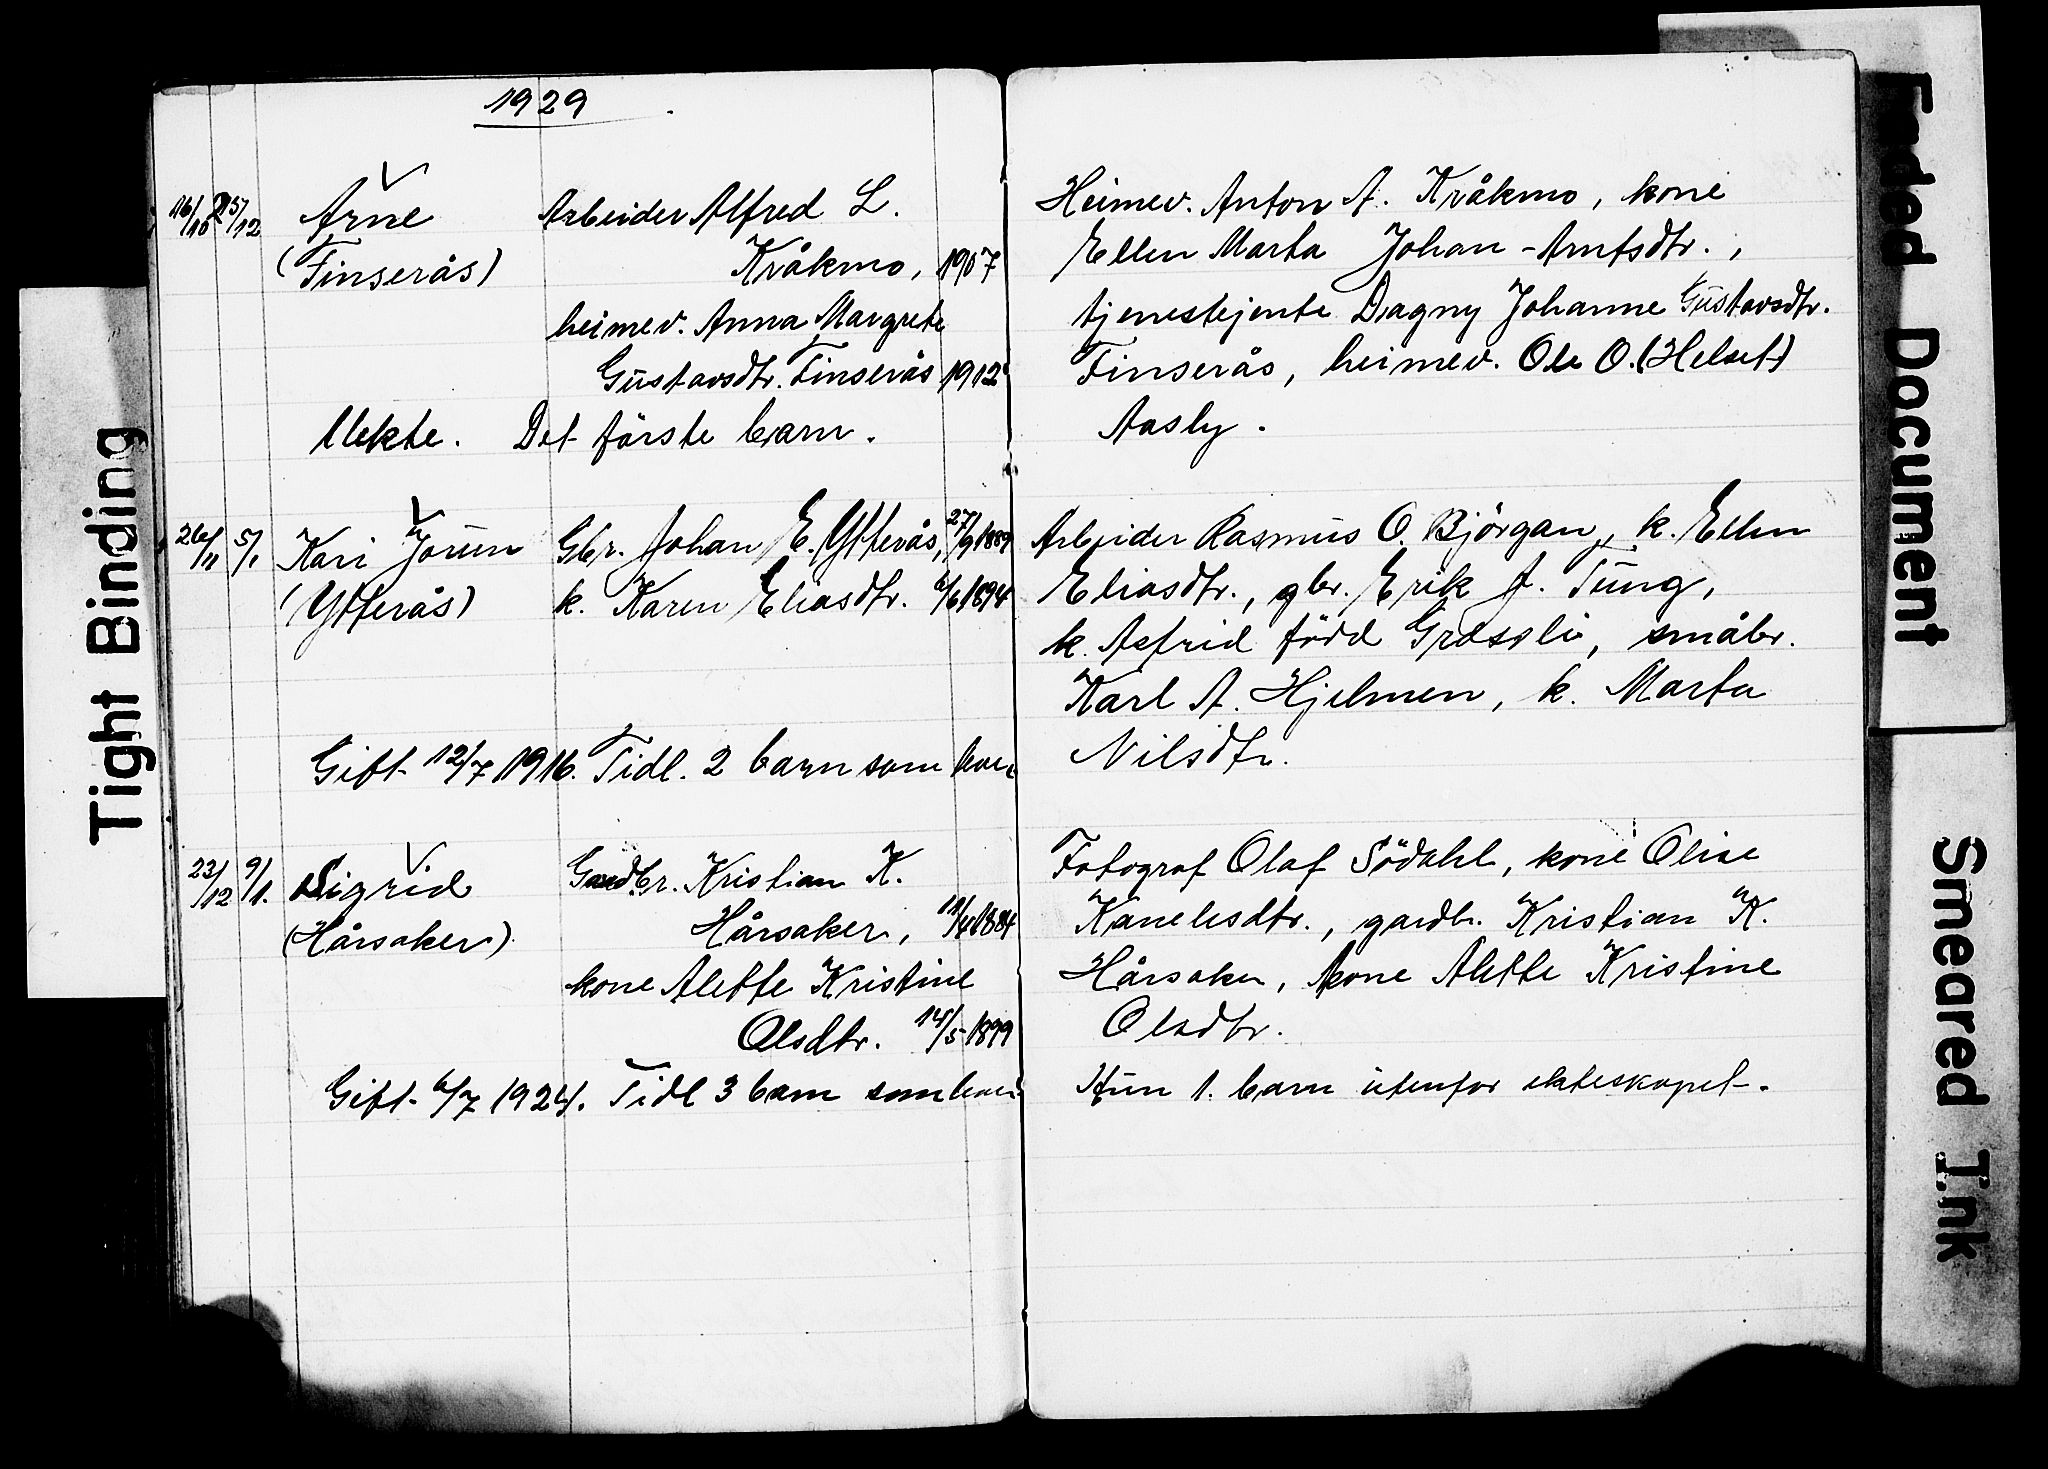 1929
16/10 25/12 Arne Arbeider Alfred L.
(Finserås) Kråkmo, 1907
heimev. Anna Margrete
Gustavsdtr. Finserås 1912
Uekte. Det første barn.
26/11 5/1 Kari Jorun Gbr. Johan E. Ytterås, 27/9 1889
(Ytterås) k. Karen Eliasdtr. 6/6 1894
Gift 12/7 1916. Tidl. 2 barn som lever
23/12 9/1. Sigrid Gardbr. Kristian K.
(Hårsaker) Hårsaker, 1884
kone Alette Kristine
Olsdtr. 14/5 1899
Gift 6/7 1924. Tidl 3 barn som lever
Heimev. Anton A. Kråkmo, kone
Ellen Marta Johan-Arntsdtr.,
tjenestejente Dagny Johanne Gustavsdtr.
Finserås, heimev. Ole O. (Helset)
Aasly.
Arbeider Rasmus O. Bjørgan, k. Ellen
Eliasdtr., gbr. Erik J. Tung,
k. Astrid född Græsli, småbr.
Karl A. Hjelmen, k. Marta
Nilsdtr.
Fotograf Olaf Södahl, kone Olise
Kanelesdtr., gardbr. Kristian K.
Hårsaker, kone Alette Kristine
Olsdtr.
Hun 1. barn utenfor ekteskapet.
Tight Binding
Faded Document
Smeared Ink